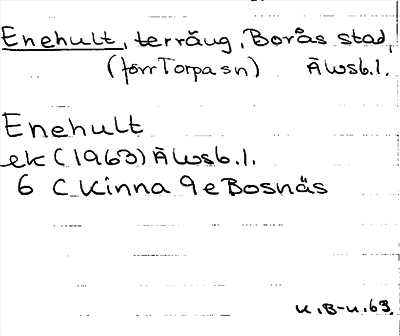 Enehult, terräng, Borås stad,
(förr Torpa sn) Ä Wsb.l.
Enehult
ek (1963) Ä Wsb.l.
6 C Kinna 9 e Bosnäs
U.B-n. 63.